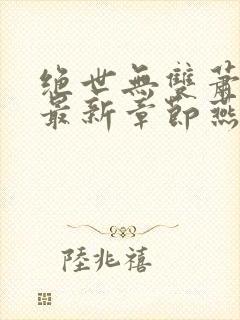 绝世無雙蕭
最新章節燕
陸兆禧